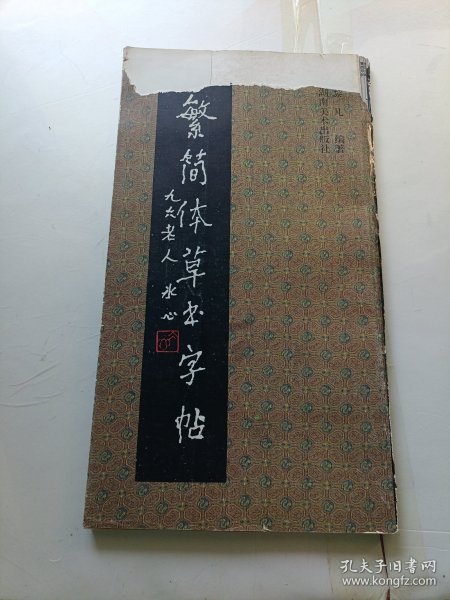 凡 编著
湖南美术出版社
繁简体草书字帖
九六老人 冰心
孔夫子旧书网
www.kongfz.com